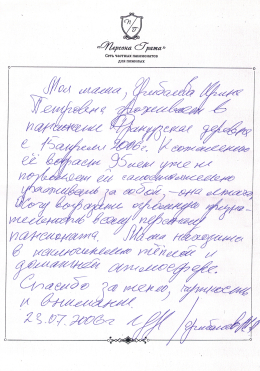 «Персона Грата»
Сеть частных пансионатов
для пожилых
Моя мама, Ирина
Петровна проживает в
пансионате Французская деревня
с 15 апреля 2006г. К сожалению
её возраст 95 лет уже не
позволяет ей самостоятельно
ухаживать за собой,
Хочу выразить огромную
всему персоналу
пансионата. Мама находится
в исключительно тёплой и
домашней атмосфере.
Спасибо за тепло,
и внимание.
23.07.2006г